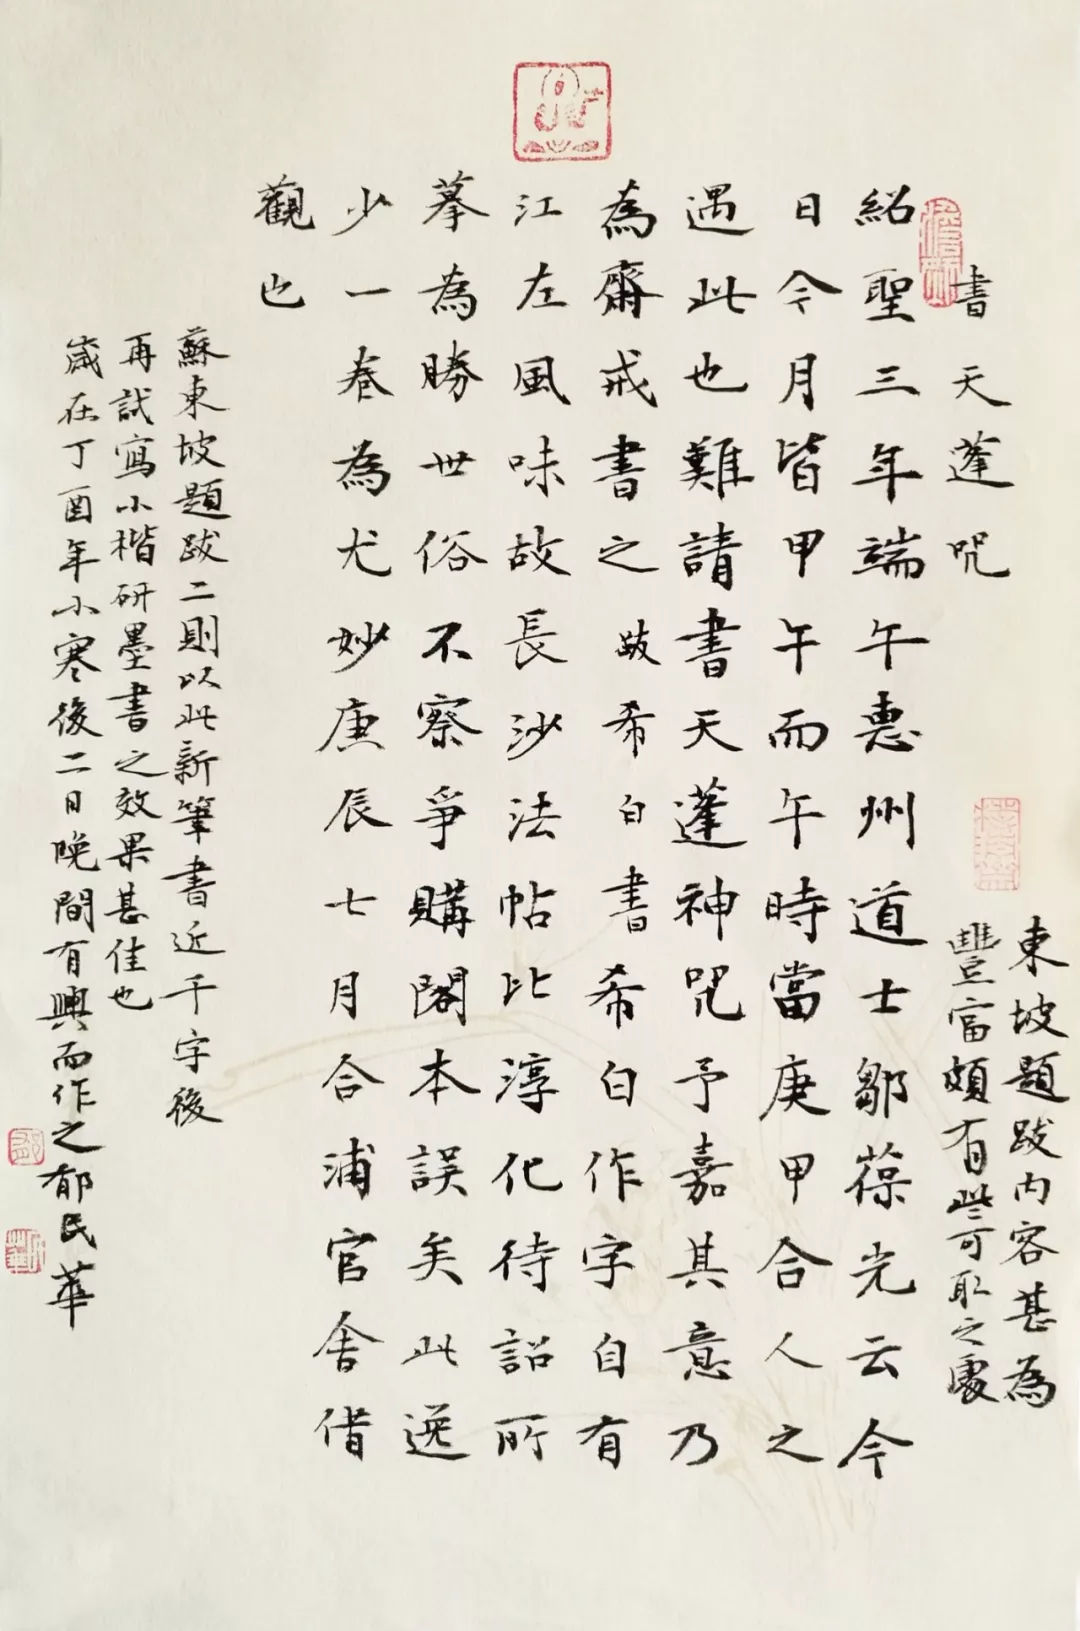 書天蓬咒
紹聖三年端午惠州道士鄒葆光云今
日今月皆甲午而午時當庚甲合人之
遇此也難請書天蓬神咒予嘉其意乃
為齋戒書之 跋希白書 希白作字自有
江左風味故長沙法帖比淳化待詔所
摹為勝世俗不察爭購閣本誤矣此逸
少一卷為尤妙庚辰七月合浦官舍借
觀也
東坡題跋內容甚為
豐富頗有些可取之處
蘇東坡題跋二則以此新筆書近千字後
再試寫小楷研墨書之效果甚佳也
歲在丁酉年小寒後二日晚間有興而作之郁民華